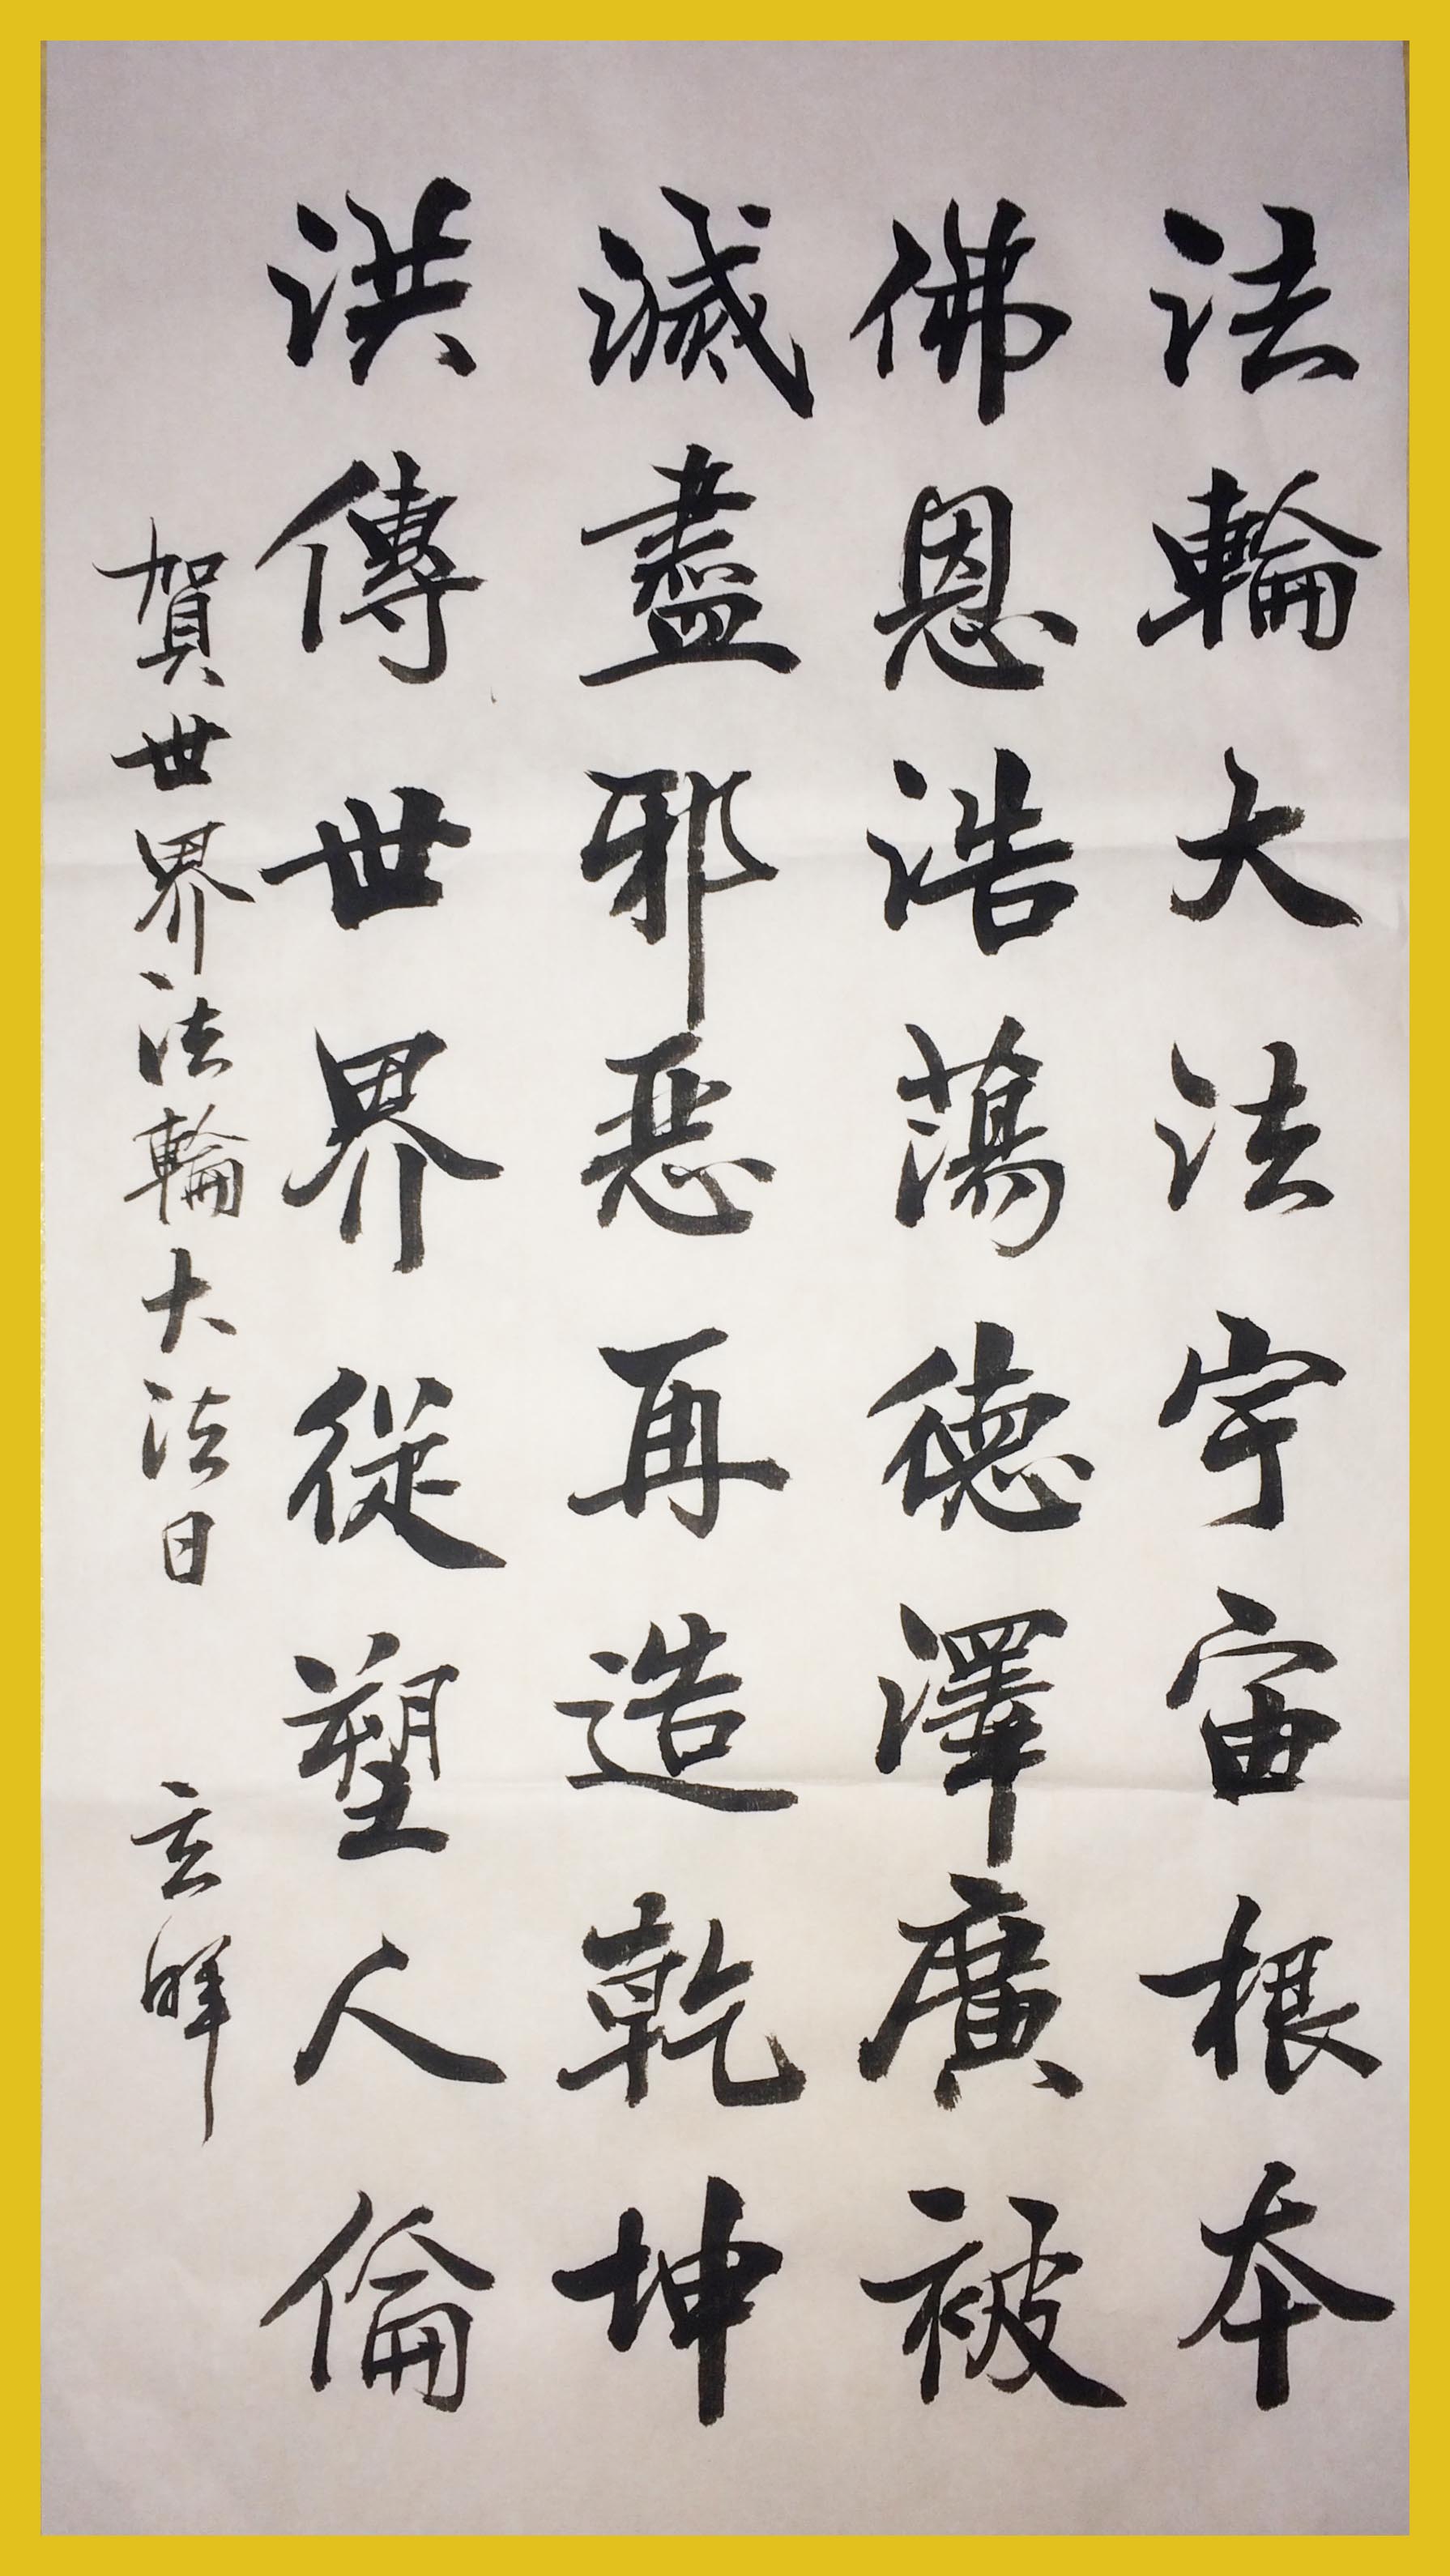 法輪大法宇宙根本
佛恩浩蕩德澤廣被
滅盡邪惡再造乾坤
洪傳世界從塑人倫
賀世界法輪大法日